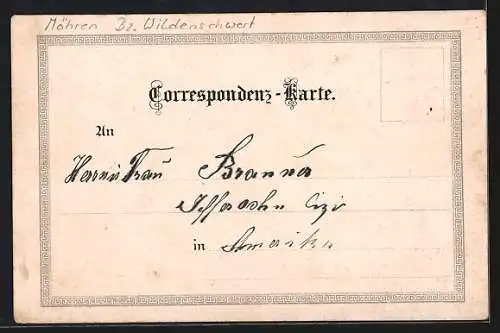 Mähren Bz. Wildenschwert
Correspondenz-Karte.
An
Herrn Frau Brauner
in Amerika